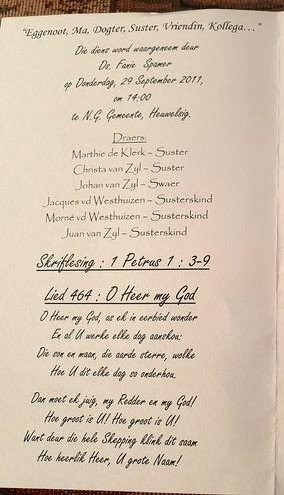 "Eggenoot, Ma, Dogter, Suster, Vriendin, Kollega..."
Die diens word waargeneem deur
Ds. Fanie Spamer
op Donderdag, 29 September 2011,
om 14:00
te N.G. Gemeente, Heuwelsig.
Draers:
Marthie de Klerk – Suster
Christa van Zyl – Suster
Johan van Zyl – Swaer
Jacques vd Westhuizen – Susterskind
Morné vd Westhuizen – Susterskind
Juan van Zyl – Susterskind
Skriflesing : 1 Petrus 1 : 3-9
Lied 464 : O Heer my God
O Heer my God, as ek in eerbied wonder
En al U werke elke dag aanskou:
Die son en maan, die aarde sterre, wolke
Hoe U dit elke dag so onderhou.
Dan moet ek juig, my Redder en my God!
Hoe groot is U! Hoe groot is U!
Want deur die hele Skepping klink dit saam
Hoe heerlik Heer, U grote Naam!